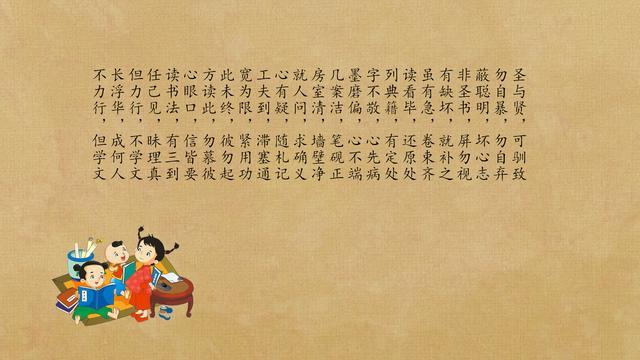 不力行，但学文
长浮华，成何人
但力行，不学文
任己见，昧理真
读书法，有三到
心眼口，信皆要
方读此，勿慕彼
此未终，彼勿起
宽为限，紧用功
工夫到，滞塞通
心有疑，随札记
就人问，求确义
房室清，墙壁净
几案洁，笔砚正
墨磨偏，心不端
字不敬，心先病
列典籍，有定处
读看毕，还原处
虽有急，卷束齐
有缺坏，就补之
非圣书，屏勿视
蔽聪明，坏心志
勿自暴，勿自弃
圣与贤，可驯致